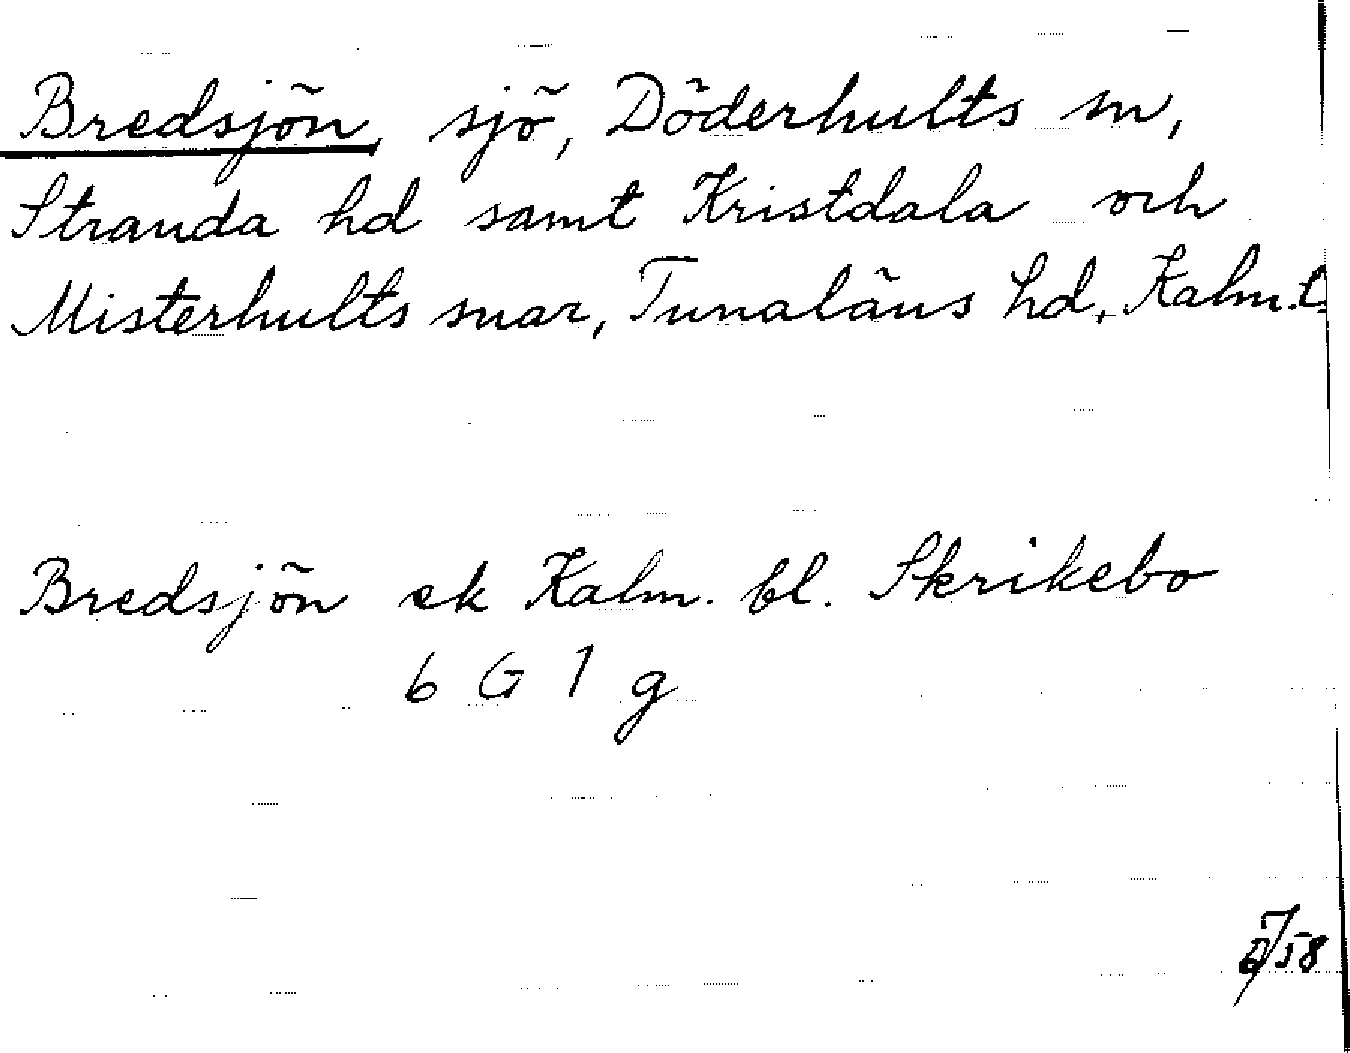 Bredsjön, sjö, Döderhults sn,
Stranda hd samt Kristdala och
Misterhults snar, Tunaläns hd, Kalm. l.
Bredsjön ek Kalm. bl. Skrikebo
6 G 1 g